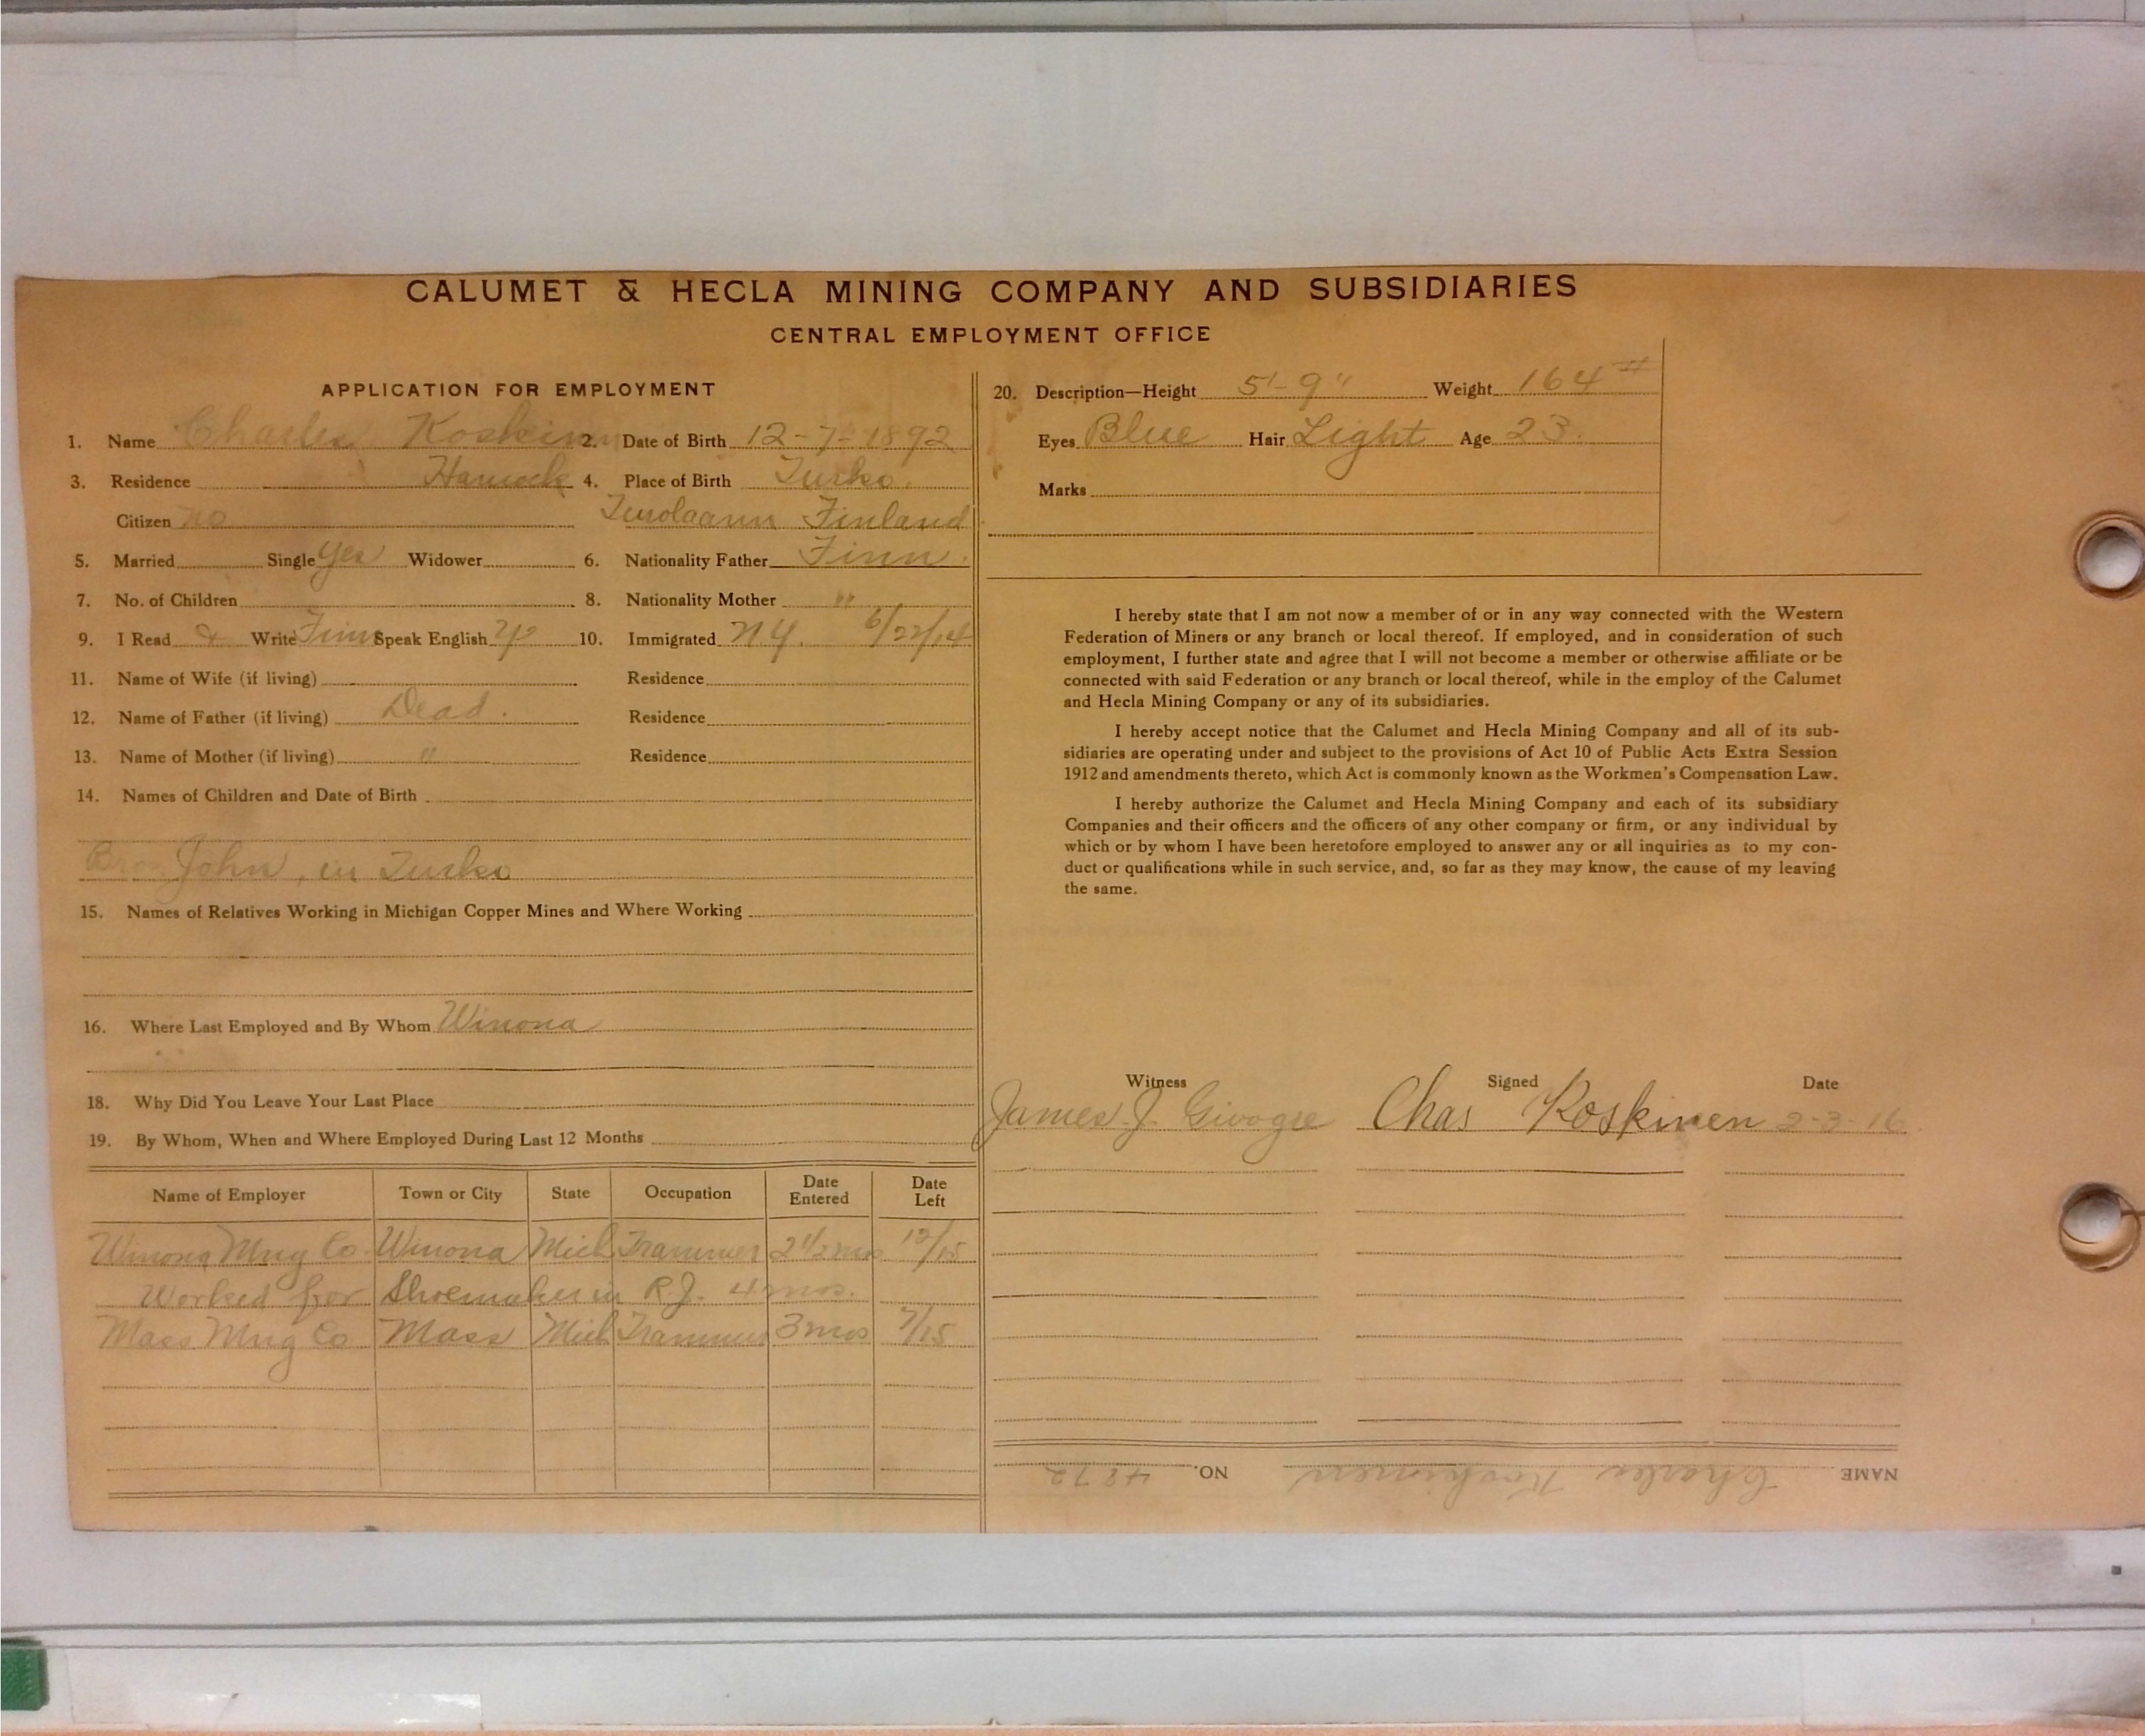 CALUMET & HECLA MINING COMPANY AND SUBSIDIARIES
CENTRAL EMPLOYMENT OFFICE
APPLICATION FOR EMPLOYMENT
1. Name Charles Koskinen 2. Date of Birth 12-7-1892
3. Residence Hancock 4. Place of Birth Turko.
Citizen no Finland
5. Married Single Yes Widower 6. Nationality Father Finn.
7. No. of Children 8. Nationality Mother "
9. I Read & Write Finn Speak English 10. Immigrated N.Y. 6/22/14
11. Name of Wife (if living) Residence
12. Name of Father (if living) Dead. Residence
13. Name of Mother (if living) " Residence
14. Names of Children and Date of Birth
Bro. John, in Turko
15. Names of Relatives Working in Michigan Copper Mines and Where Working
16. Where Last Employed and By Whom Winona
18. Why Did You Leave Your Last Place
19. By Whom, When and Where Employed During Last 12 Months
Name of Employer Town or City State Occupation Date Entered Date Left
Winona Mng Co. Winona Mich Trammer 2 1/2 mos 12/15
Worked for Shoemaker in R.J. 4 mos.
Mass Mng Co Mass Mich Trammer 3 mos 7/15
20. Description—Height 5'-9" Weight 164#
Eyes Blue Hair Light Age 23.
Marks
I hereby state that I am not now a member of or in any way connected with the Western
Federation of Miners or any branch or local thereof. If employed, and in consideration of such
employment, I further state and agree that I will not become a member or otherwise affiliate or be
connected with said Federation or any branch or local thereof, while in the employ of the Calumet
and Hecla Mining Company or any of its subsidiaries.
I hereby accept notice that the Calumet and Hecla Mining Company and all of its sub-
sidiaries are operating under and subject to the provisions of Act 10 of Public Acts Extra Session
1912 and amendments thereto, which Act is commonly known as the Workmen's Compensation Law.
I hereby authorize the Calumet and Hecla Mining Company and each of its subsidiary
Companies and their officers and the officers of any other company or firm, or any individual by
which or by whom I have been heretofore employed to answer any or all inquiries as to my con-
duct or qualifications while in such service, and, so far as they may know, the cause of my leaving
the same.
Witness Signed Date
James J. Chas Koskinen 2-3-16
NAME Charles Koskinen NO. 4872